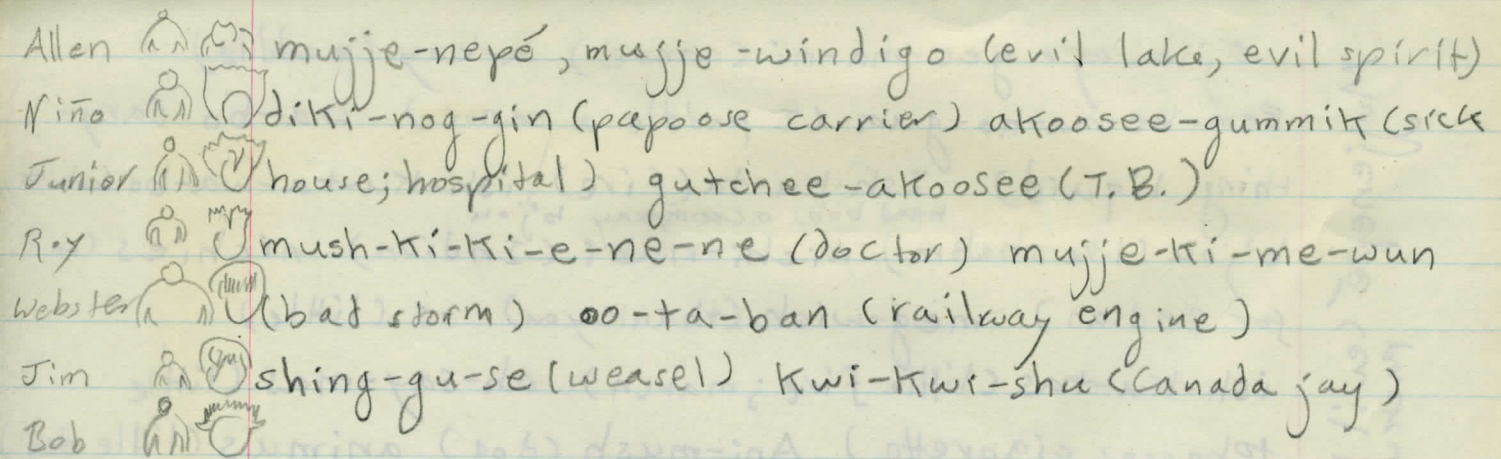 Allen mujje-nepé, mujje-windigo (evil lake, evil spirit)
Niño diki-nog-gin (papoose carrier) akoosee-gummik (sick
Junior house; hospital) gutchee-akoosee (T.B.)
Roy mush-ki-ki-e-ne-ne (doctor) mujje-ki-me-wun
Webster (bad storm) oo-ta-ban (railway engine)
Jim shing-gu-se (weasel) Kwi-Kwi-shu (Canada jay)
Bob